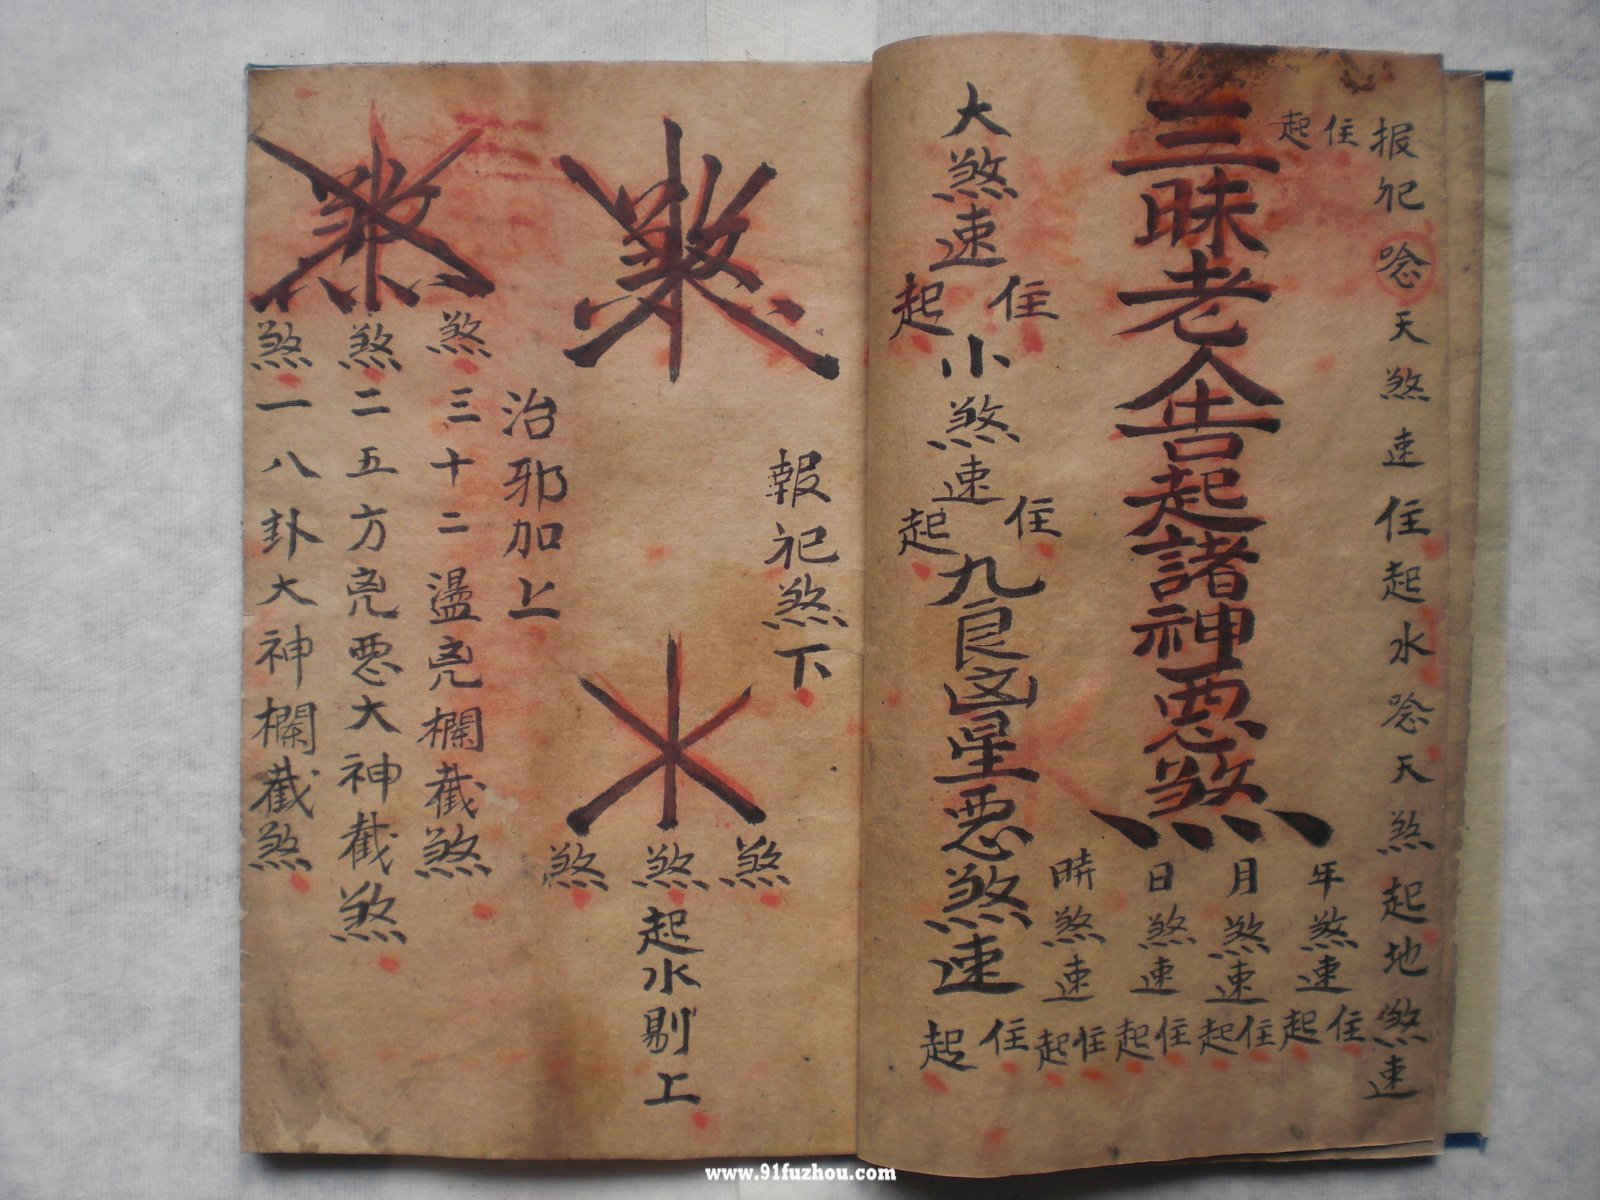 报祀唸天煞速住起水唸天煞起地煞速
住起
三昧老人告起諸神悪煞
年煞速住起
月煞速住起
日煞速住起
時煞速住起
大煞速住起小煞速住起九良凶星悪煞速住起
報祀煞下
煞
煞煞煞
起水剔上
治邪加上
煞
煞三十二盪兇欄截煞
煞二五方兇悪大神截煞
煞一八卦大神欄截煞
www.91fuzhou.com